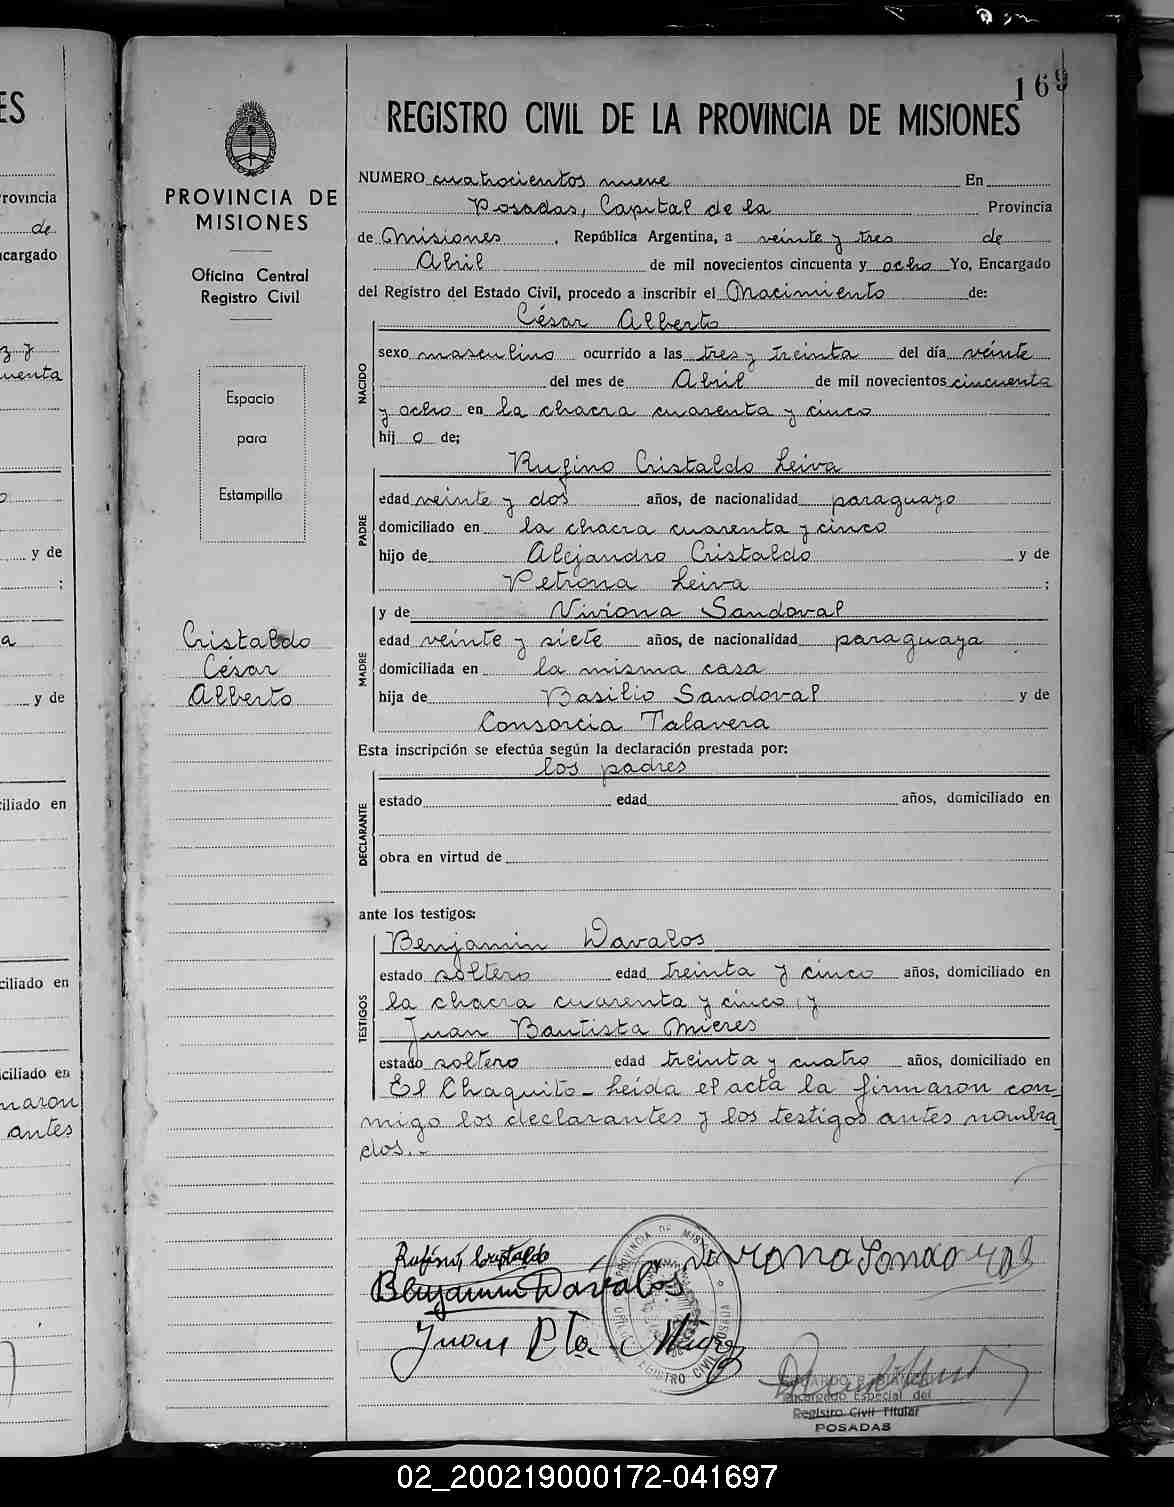 169
REGISTRO CIVIL DE LA PROVINCIA DE MISIONES
PROVINCIA DE
MISIONES
Oficina Central
Registro Civil
Espacio
para
Estampilla
Cristaldo
César
Alberto
NUMERO cuatrocientos nueve En
Posadas, Capital de la Provincia
de Misiones, República Argentina, a veinte y tres de
Abril de mil novecientos cincuenta y ocho Yo, Encargado
del Registro del Estado Civil, procedo a inscribir el Nacimiento de:
César Alberto
NACIDO
sexo masculino ocurrido a las tres y treinta del día veinte
del mes de Abril de mil novecientos cincuenta
y ocho en la chacra cuarenta y cinco
hij o de;
Rufino Cristaldo Leiva
PADRE
edad veinte y dos años, de nacionalidad paraguayo
domiciliado en la chacra cuarenta y cinco
hijo de Alejandro Cristaldo y de
Petrona Leiva ;
y de Viviana Sandoval
MADRE
edad veinte y siete años, de nacionalidad paraguaya
domiciliada en la misma casa
hija de Basilio Sandoval y de
Consorcia Talavera
Esta inscripción se efectúa según la declaración prestada por:
los padres
DECLARANTE
estado edad años, domiciliado en
obra en virtud de
ante los testigos:
Benjamin Davalos
TESTIGOS
estado soltero edad treinta y cinco años, domiciliado en
la chacra cuarenta y cinco, y
Juan Bautista Mieres
estado soltero edad treinta y cuatro años, domiciliado en
El Chaquito - Leída el acta la firmaron con-
migo los declarantes y los testigos antes nombra-
dos. -
Rufino Cristaldo
Benjamin Dávalos
Juan Bta.
Encargado Especial del
Registro Civil Titular
POSADAS
ES
rovincia
de
ncargado
y de
;
y de
ciliado en
ciliado en
ciliado en
maron
antes
02_200219000172-041697